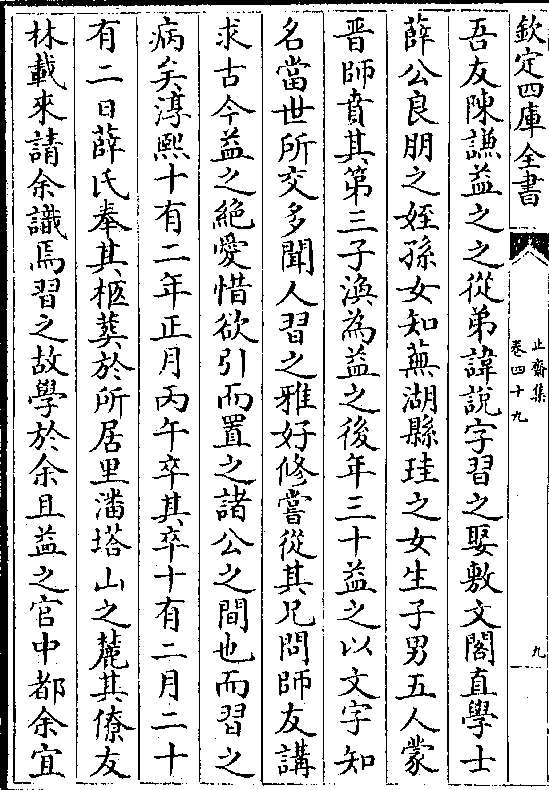 欽定四庫全書
止齋集
卷四十九
九
吾友陳謙益之之從弟諱說字習之娶敷文閣直學士
薛公良朋之姪孫女知蕪湖縣珪之女生子男五人蒙
晉師賁其第三子渙為益之後年三十益之以文字知
名當世所交多聞人習之雅好修嘗從其兄問師友講
求古今益之絶愛惜欲引而置之諸公之間也而習之
病矣淳熙十有二年正月丙午卒其卒十有二月二十
有二日薛氏奉其柩葬於所居里潘塔山之麓其僚友
林載來請余識焉習之故學於余且益之官中都余宜